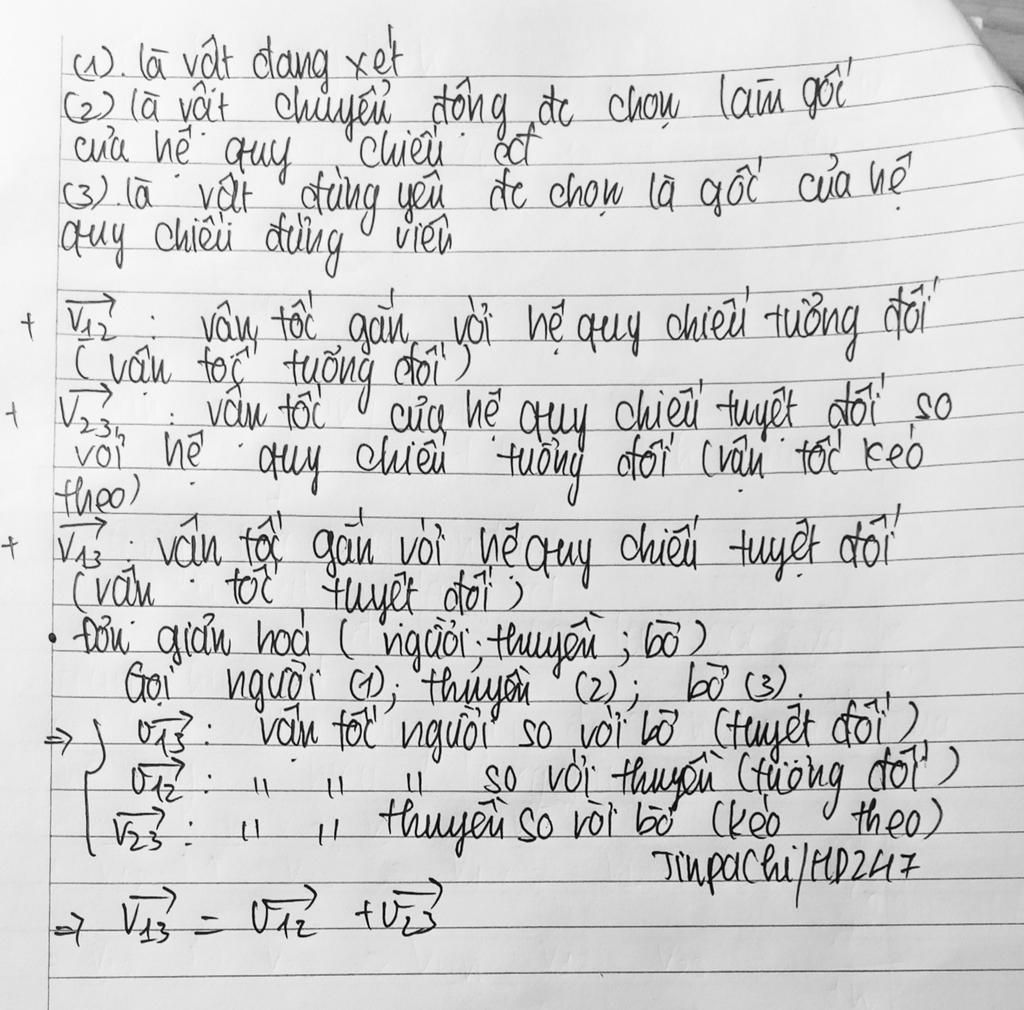 (1). là vật đang xét
(2) là vật chuyển động đc chọn làm gốc
của hệ quy chiếu cđ
(3). là vật đứng yên đc chọn là gốc của hệ
quy chiếu đứng viên
+ V12 : vận tốc gắn với hệ quy chiếu tương đối
(vận tốc tương đối)
+ V23 : vận tốc của hệ quy chiếu tuyệt đối so
với hệ quy chiếu tương đối (vận tốc kéo
theo)
+ V13 : vận tốc gắn với hệ quy chiếu tuyệt đối
(vận tốc tuyệt đối)
• Đơn giản hoá (người; thuyền; bờ)
Gọi người (1); thuyền (2); bờ (3).
=> { v13 : vận tốc người so với bờ (tuyệt đối)
v12 : " " " so với thuyền (tương đối)
V23 : " " thuyền so với bờ (kéo theo)
Jinpachi/HD247
=> V13 = v12 + v23